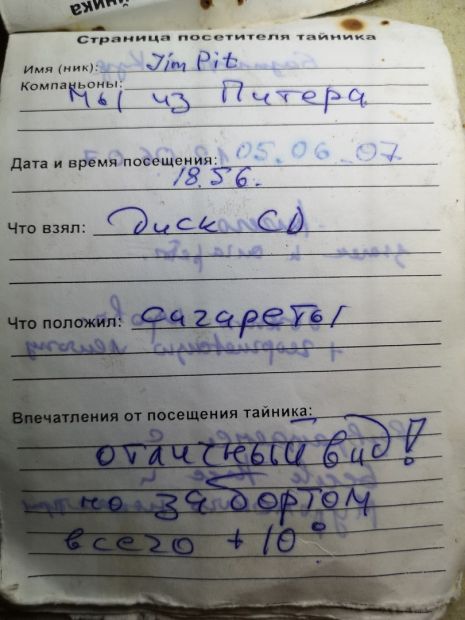 тайника
Страница посетителя тайника
Имя (ник): Jim Pit
Компаньоны:
мы из Питера
Дата и время посещения: 05.06.07
18.56.
Что взял: Диск CD
Что положил: сагареты
Впечатления от посещения тайника:
отличный вид!
но за бортом
всего +10°